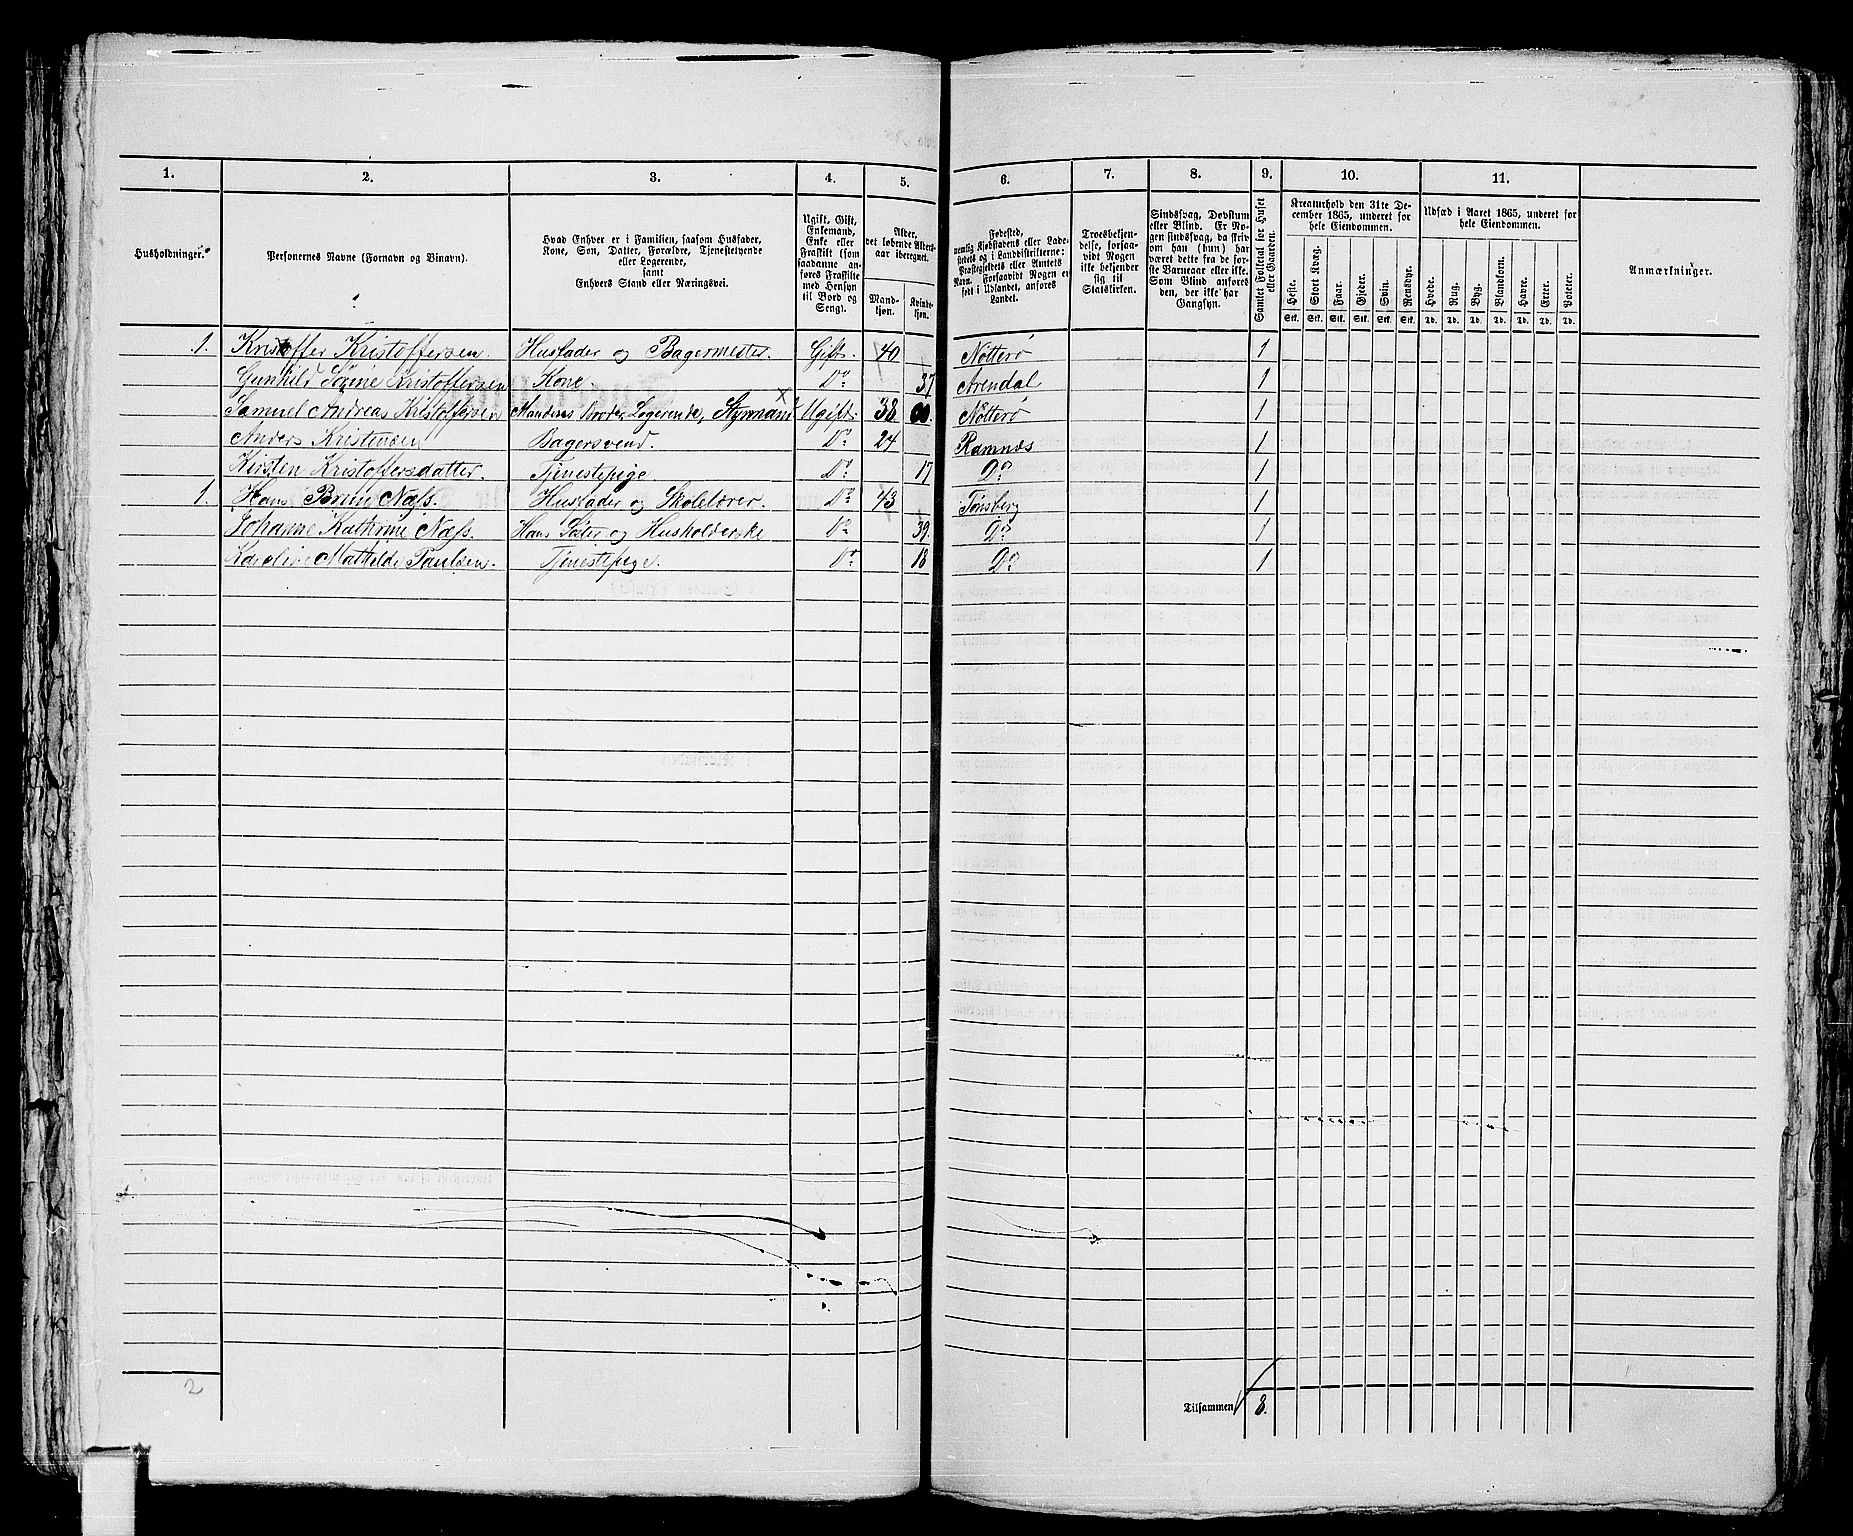 1. 2. 3. 4. 5. 6. 7. 8. 9. 10. 11.
Husholdninger.
Personernes Navne (Fornavn og Binavn).
Hvad Enhver er i Familien, saasom Husfader,
Kone, Søn, Datter, Forældre, Tjenestetyende
eller Logerende,
samt
Enhvers Stand eller Næringsvei.
Ugift, Gift,
Enkemand,
Enke eller
Fraskilt (som
saadanne an-
føres Fraskilte
med Hensyn
til Bord og
Seng).
Alder,
det løbende Alders-
aar iberegnet.
Mand-
kjøn.
Kvinde-
kjøn.
Fødested,
nemlig Kjøbstadens eller Lade-
stedets og i Landdistrikterne:
Præstegjeldets eller Amtets
Navn. Forsaavidt Nogen er
født i Udlandet, anføres
Landet.
Troesbekjen-
delse, forsaa-
vidt Nogen
ikke bekjender
sig til
Statskirken.
Sindssvag, Døvstum
eller Blind. Er No-
gen sindssvag, da skriv
om han (hun) har
været dette fra de før-
ste Barneaar eller ikke.
Som Blind anføres
den, der ikke har
Gangsyn.
Samlet Folketal for Huset
eller Gaarden.
Kreaturhold den 31te De-
cember 1865, underet for
hele Eiendommen.
Heste. Stort Kvæg. Faar. Gjeder. Svin. Rensdyr.
Stk. Stk. Stk. Stk. Stk. Stk.
Udsæd i Aaret 1865, underet for
hele Eiendommen.
Hvede. Rug. Byg. Blandkorn. Havre. Erter. Poteter.
Td. Td. Td. Td. Td. Td. Td.
Anmærkninger.
1. Kristoffer Kristoffersen. Husfader og Bagermester. Gift. 40 Nötterö 1
Gunhild Sörine Kristoffersen Kone. Do 37 Arendal 1
Samuel Andreas Kristoffersen Mandens Broder, Logerende, Styrmand Ugift. 38 Nötterö 1
Anders Kristensen Bagersvend. Do 24 Ramnæs 1
Kirsten Kristoffersdatter. Tjenestepige. Do 17 Do 1
1. Hans Bruun Næss. Husfader og Skolelærer. Do 43 Tønsberg 1
Johanne Kathrine Næss. Hans Søster og Husholderske Do 39. Do 1
Karoline Mathilde Paulsen. Tjenestepige. Do 18 Do 1
2
Tilsammen 8.